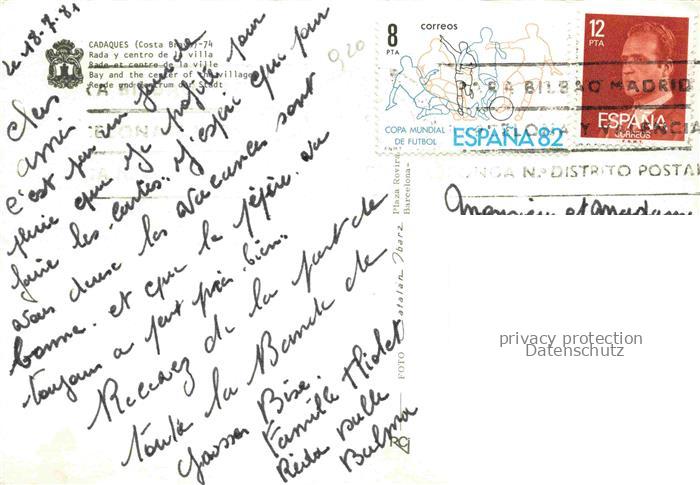 CADAQUES (Costa Brava)-74
Rada y centro de la villa
Rade et centre de la ville
Bay and the center of the village
Reede und Zentrum der Stadt
le 18.7.81
920
Chers amis
C'est par un jour de
pluie que je profite pour
faire les cartes. J'espère que pour
vous deux les vacances sont
bonne. et que la pépère. va
toujours a peut près bien.
Recevez de la part de
toute la Bande de
Grosses Bise.
Famille
8
PTA
correos
COPA MUNDIAL
DE FUTBOL
ESPAÑA 82
12
PTA
ESPAÑA
CORREOS
PARA BILBAO MADRID
BARCELONA Y VALENCIA
PONGA N.º DISTRITO POSTAL
Monsieur et Madame
FOTO Catalan Ibarz Plaza Rovira
Barcelona-
RC
privacy protection
Datenschutz